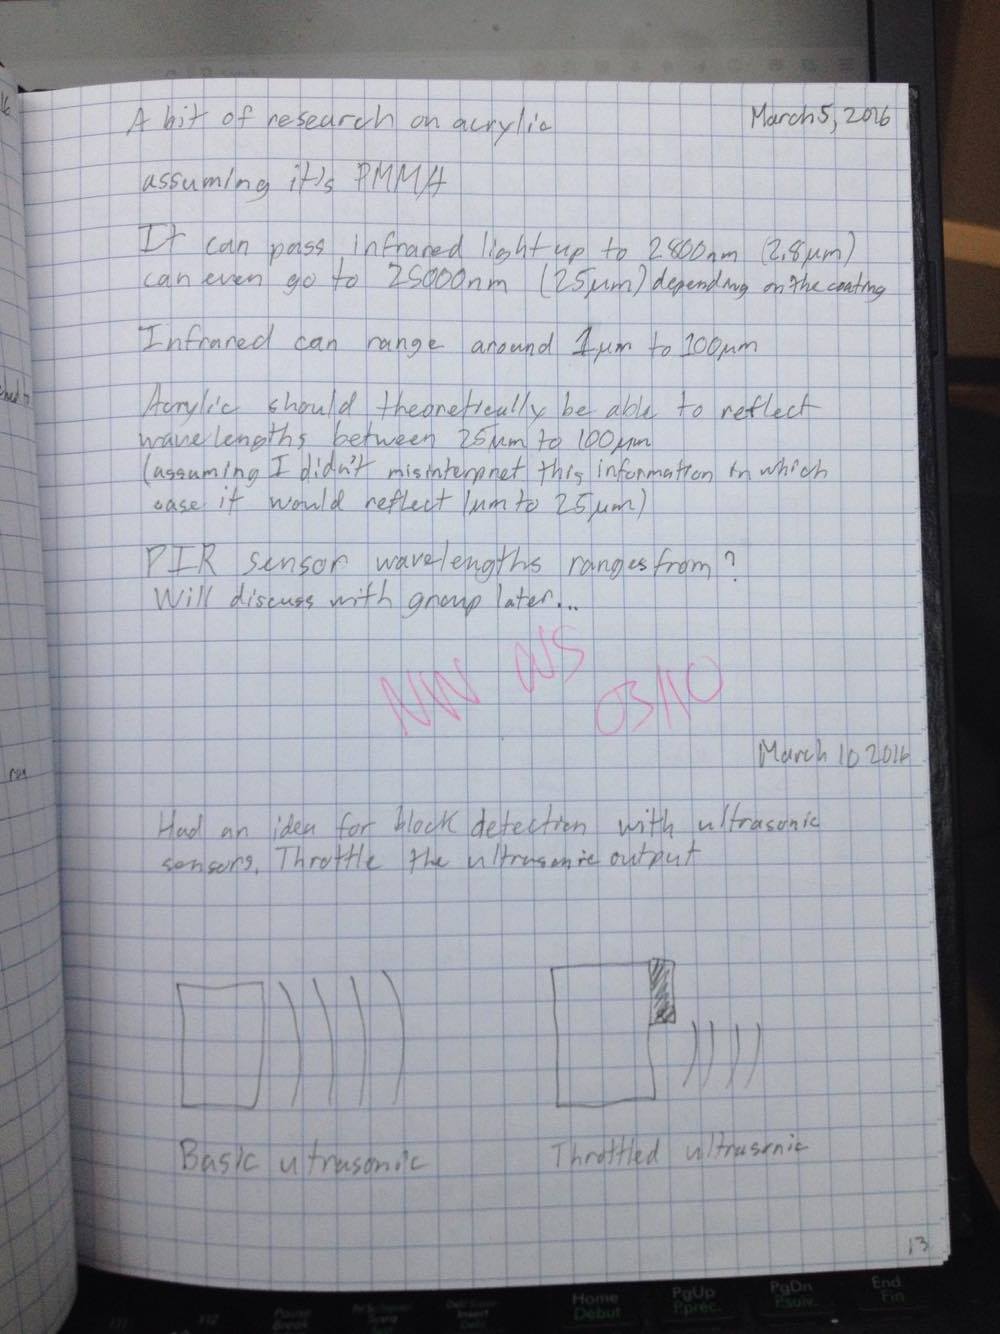 A bit of research on acrylic
March 5, 2016
assuming it's PMMA
It can pass infrared light up to 2800nm (2.8µm)
can even go to 25000nm (25µm) depending on the coating
Infrared can range around 1µm to 100µm
Acrylic should theoretically be able to reflect
wavelengths between 25µm to 100µm
(assuming I didn't misinterpret this information in which
case it would reflect 1µm to 25µm)
PIR sensor wavelengths ranges from?
Will discuss with group later...
NW WS
03/10
March 10 2016
Had an idea for block detection with ultrasonic
sensors. Throttle the ultrasonic output
Basic utrasonic
Throttled ultrasonic
13
Home
Début
PgUp
P.préc.
PgDn
P.suiv.
End
Fin